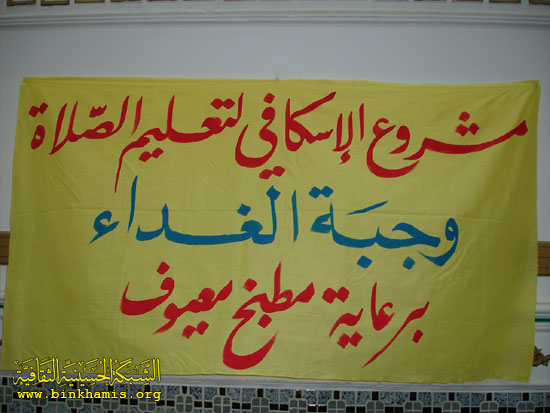 مشروع الإسكافي لتعليم الصّلاة
وجبَة الغداء
برعاية مطبخ معيوف
الشبكة الحسينية الثقافية
www.binkhamis.org